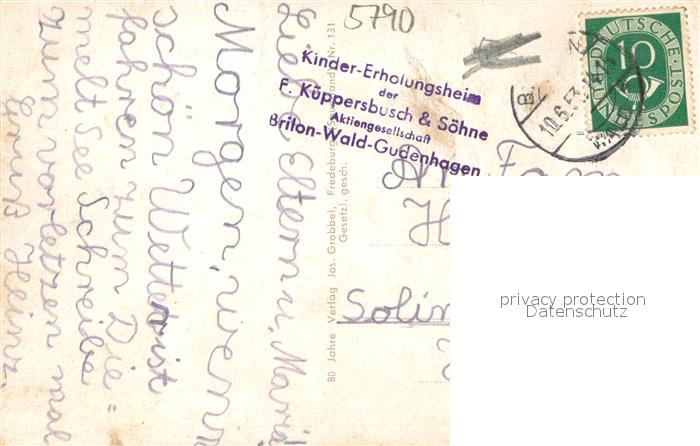 Liebe Eltern u. Maria
Morgen, wenn
schön Wetter ist
fahren zum Die=
melt See Schreibe
zum vorletzen mal
Gruß Heinz.
80 Jahre Verlag Jos. Grobbel, Fredeburg Nr. 131
Gesetzl. gesch.
5790
Kinder-Erholungsheim
der
F. Küppersbusch & Söhne
Aktiengesellschaft
Brilon-Wald-Gudenhagen
10.6.53
DEUTSCHE
BUNDESPOST
10
Fam
H
Solin
privacy protection
Datenschutz